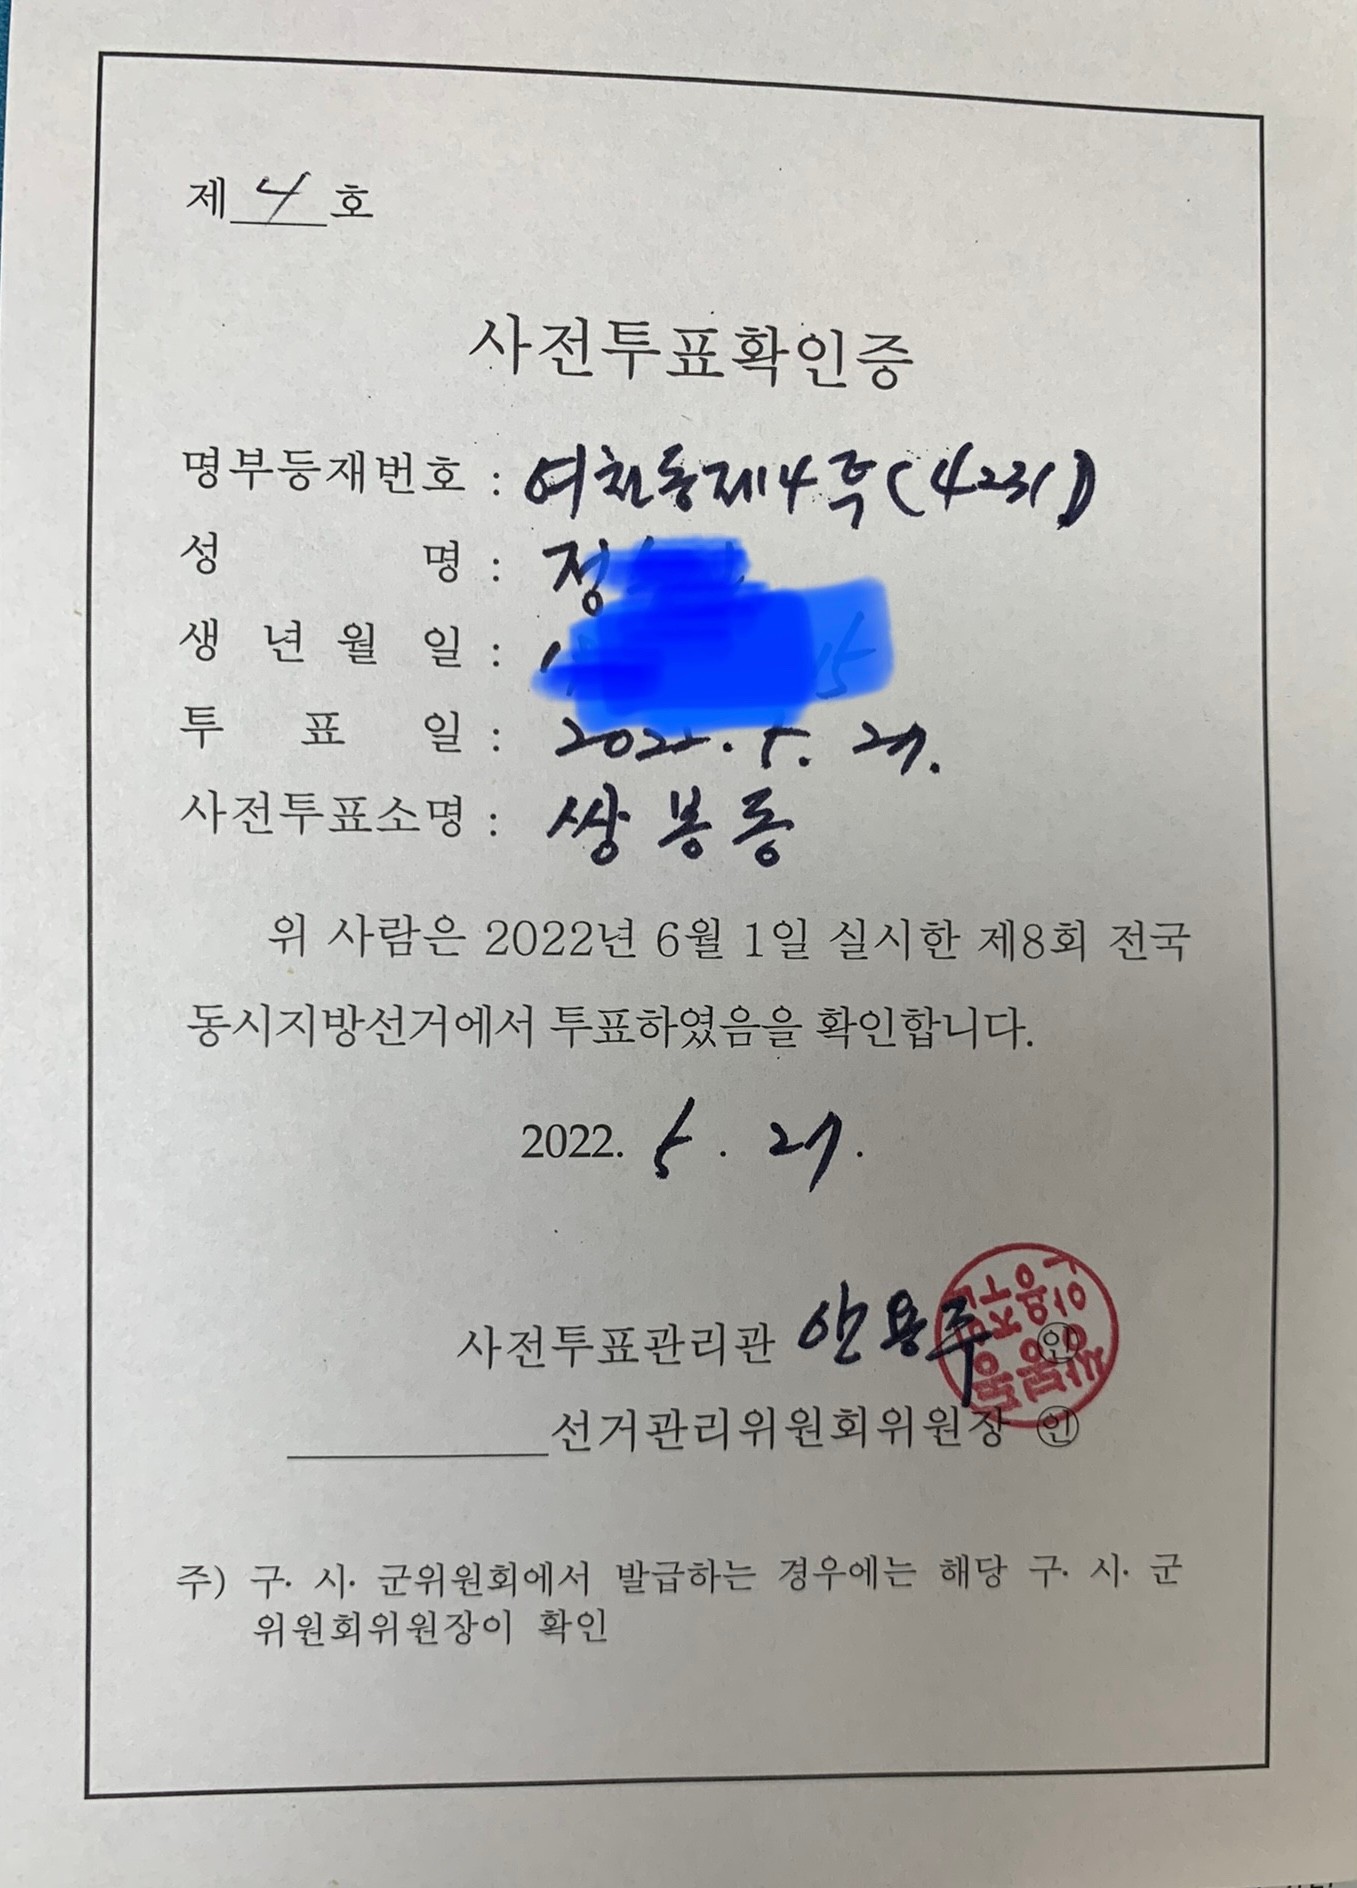 제 4 호
사전투표확인증
명부등재번호 : 여천동제4투(4231)
성 명 : 정
생 년 월 일 :
투 표 일 : 2022. 5. 27.
사전투표소명 : 쌍봉동
위 사람은 2022년 6월 1일 실시한 제8회 전국
동시지방선거에서 투표하였음을 확인합니다.
2022. 5. 27.
사전투표관리관 안용주 ㊞
선거관리위원회위원장 ㊞
주) 구· 시· 군위원회에서 발급하는 경우에는 해당 구· 시· 군
위원회위원장이 확인